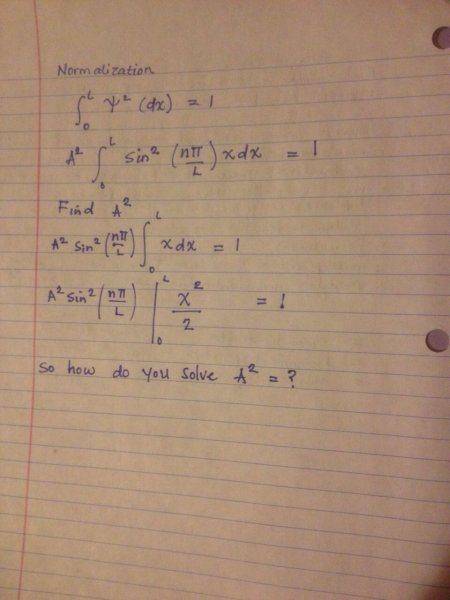 Normalization
∫₀ᴸ Ψ² (dx) = 1
A² ∫₀ᴸ sin² (nπ/L) x dx = 1
Find A²
A² sin² (nπ/L) ∫₀ᴸ x dx = 1
A² sin² (nπ/L) |₀ᴸ x²/2 = 1
So how do you solve A² = ?